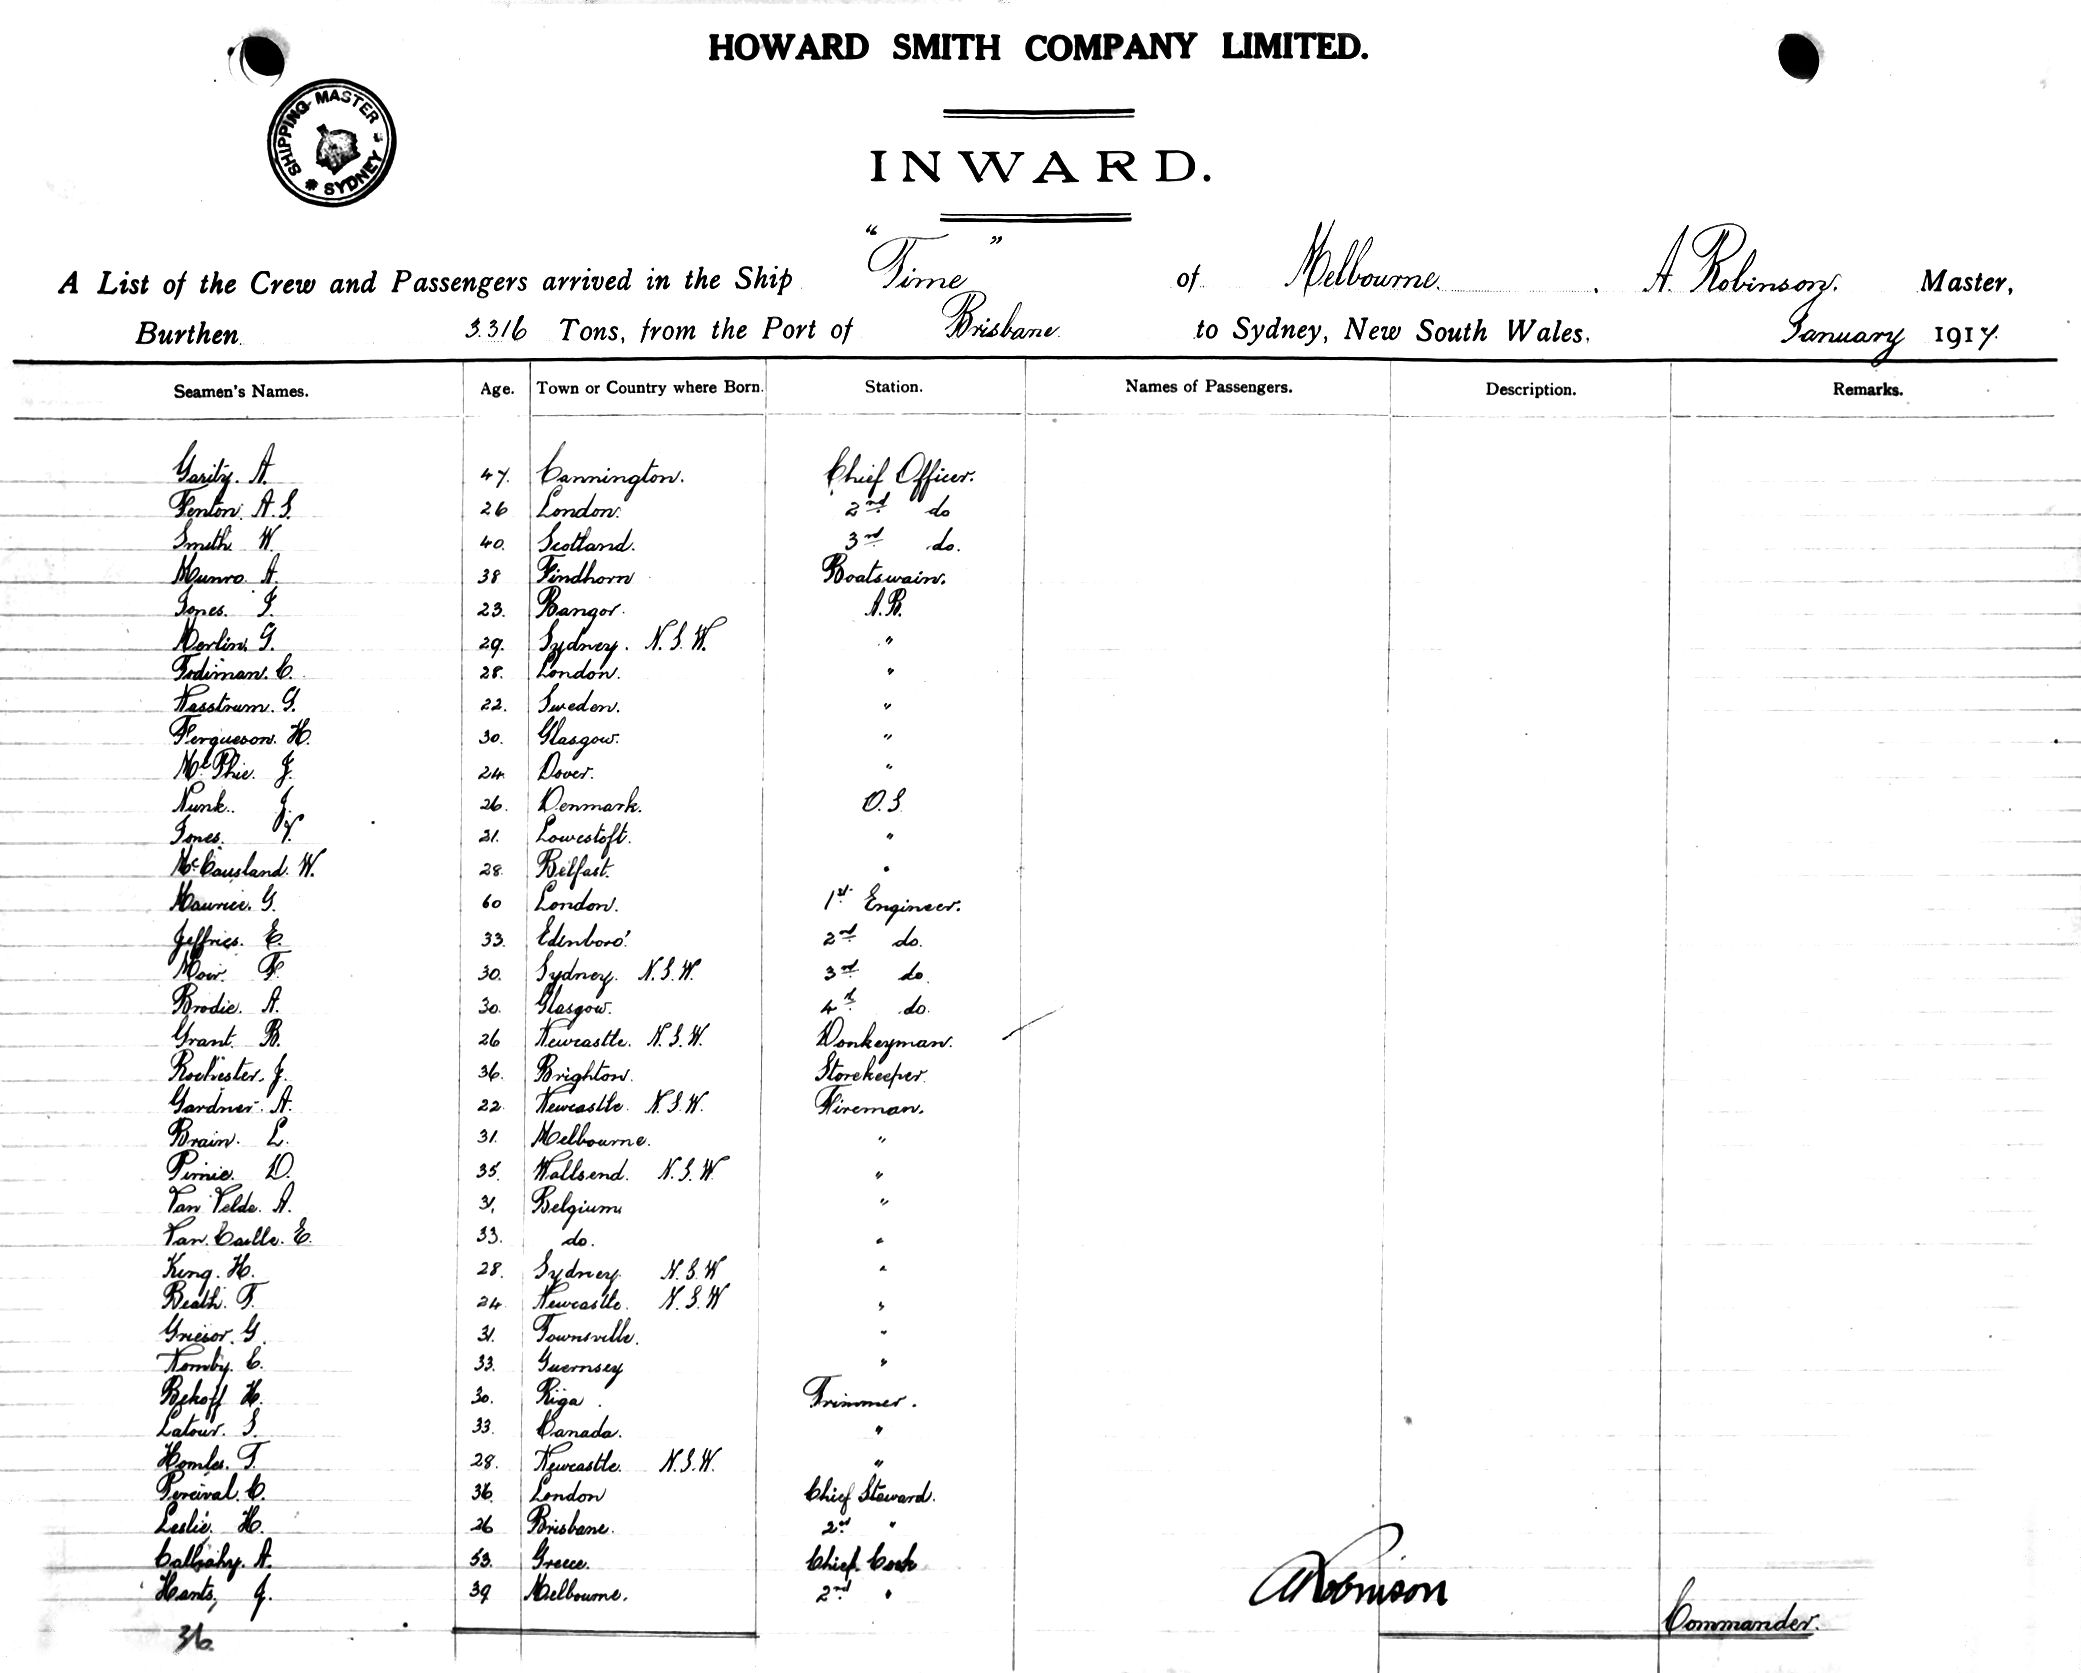 HOWARD SMITH COMPANY LIMITED.
SHIPPING MASTER SYDNEY
INWARD.
A List of the Crew and Passengers arrived in the Ship "Time" of Melbourne. A. Robinson. Master,
Burthen 3316 Tons, from the Port of Brisbane to Sydney, New South Wales, January 1917.
Seamen's Names. Age. Town or Country where Born. Station. Names of Passengers. Description. Remarks.
Garity. A. 47. Cannington. Chief Officer.
Fenton. A. S. 26 London. 2nd do
Smith W. 40. Scotland. 3rd do.
Munro. A. 38 Findhorn Boatswain.
Jones. J. 23. Bangor. A.B.
Merlin. G. 29. Sydney. N.S.W. "
Todiman. C. 28. London. "
Nasstrum. G. 22. Sweden. "
Fergueson. H. 30. Glasgow. "
McPhie. J. 24. Dover. "
Nunk. J. 26. Denmark. O.S.
Jones. T. 21. Lowestoft. "
McCausland. W. 28. Belfast. "
Maurice. G. 60 London. 1st Engineer.
Jeffries. E. 33. Edinboro'. 2nd do.
Moir. F. 30. Sydney. N.S.W. 3rd do.
Brodie. A. 30. Glasgow. 4th do.
Grant. B. 26 Newcastle. N.S.W. Donkeyman.
Rochester. J. 36. Brighton. Storekeeper.
Gardner. A. 22. Newcastle. N.S.W. Fireman.
Brain. L. 31. Melbourne. "
Pirnie. D. 35. Wallsend. N.S.W. "
Van Velde. A. 31. Belgium "
Van. Caille. E. 33. do. "
King. H. 28. Sydney. N.S.W "
Beath. T. 24. Newcastle. N.S.W "
Griesor. G. 31. Townsville. "
Nomby. C. 33. Guernsey "
Bekoff H. 30. Riga. Trimmer.
Latour. S. 33. Canada. "
Homles. T. 28. Newcastle. N.S.W. "
Percival. C. 36. London Chief Steward.
Leslie. H. 26 Brisbane. 2nd "
A. 53. Greece. Chief. Cook
Hants, J. 39 Melbourne. 2nd "
ARobinson
36. Commander.